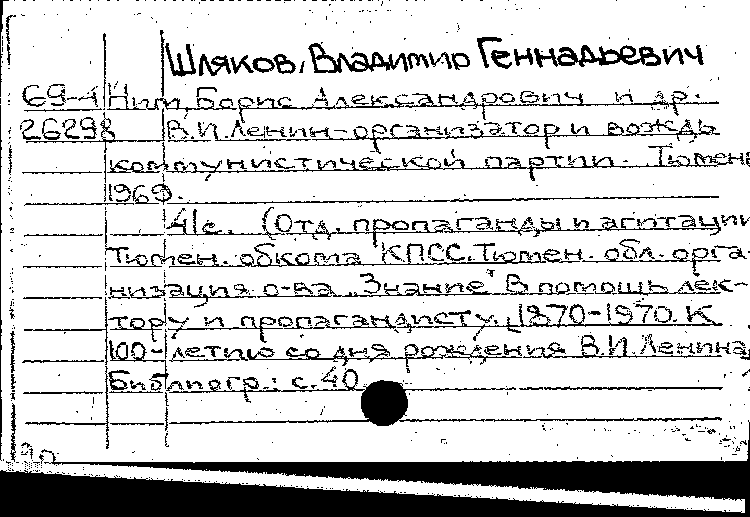 Шляков, Владимир Геннадьевич
69-4 Нит, Борис Александрович и др.
26298 В.И.Ленин-организатор и вождь
коммунистической партии. Тюмень
1969.
41с. (Отд. пропаганды и агитации
Тюмен. обкома КПСС. Тюмен. обл. орга-
низация о-ва „Знание" В помощь лек-
тору и пропагандисту. 1870-1970. К
100-летию со дня рождения В.И.Ленина
Библиогр.: с. 40